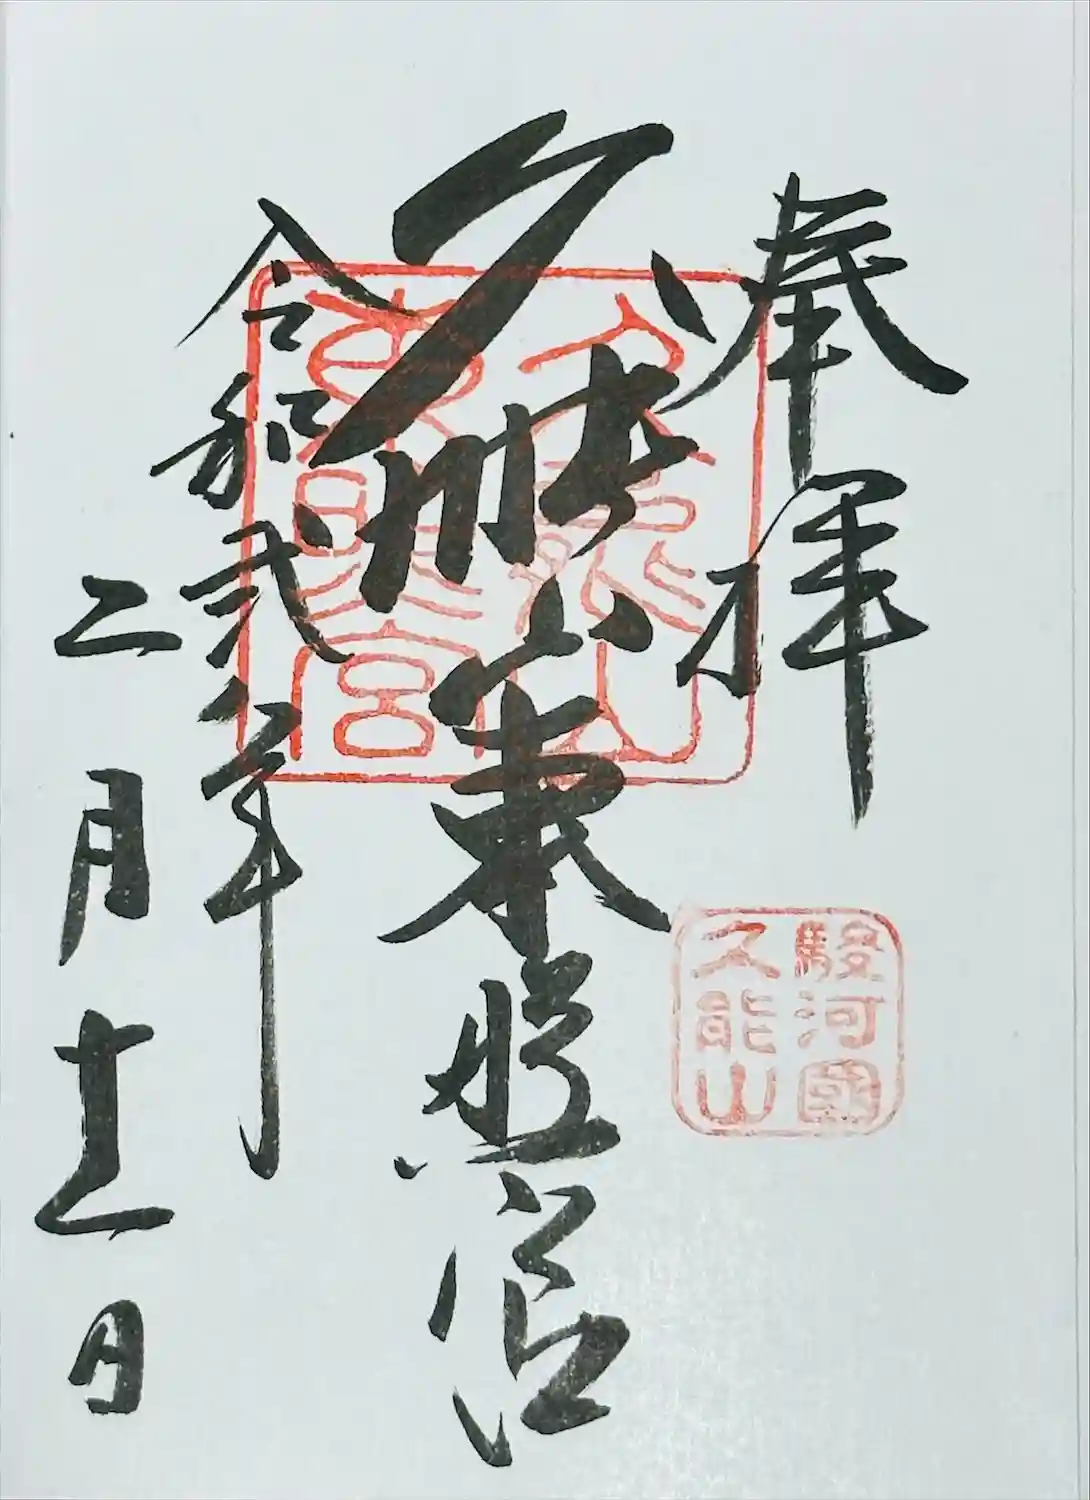 奉拝
久能山東照宮
久能山
東照宮
駿河國
久能山
令和弐年
二月十一日